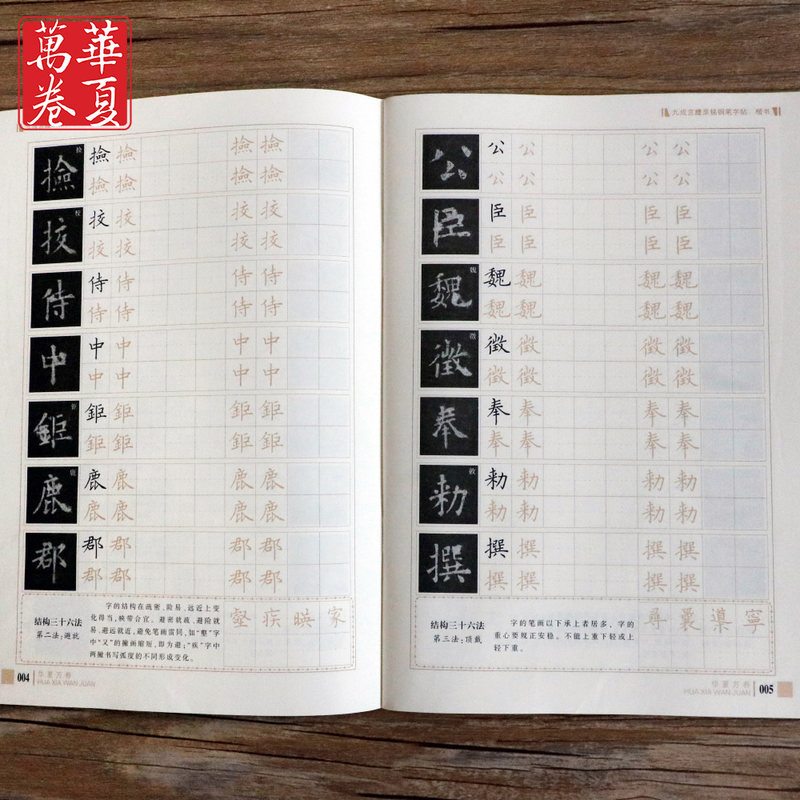 華夏
萬卷
九成宫醴泉铭钢笔字帖 楷书
撿 撿 撿 撿 撿
撿 撿 撿 撿
挍 校 挍 挍 挍 挍
挍 挍 挍 挍
侍 侍 侍 侍 侍
侍 侍 侍 侍
中 中 中 中 中
中 中 中 中
鉅 鉅 鉅 鉅 鉅
鉅 鉅 鉅 鉅
鹿 鹿 鹿 鹿 鹿
鹿 鹿 鹿 鹿
郡 郡 郡 郡 郡
郡 郡 郡 郡
结构三十六法
第二法:避就
字的结构在疏密、险易、远近上变
化得当,映带自宜。避密就疏、避险就
易、避远就近,避免笔画雷同,如“壑”字
中“又”的撇画缩短,即为避;“疾”字中
两撇书写弧度的不同形成变化。
壑 疾 暎 家
004
华夏万卷
HUA XIA WAN JUAN
公 公 公 公 公
公 公 公 公
臣 臣 臣 臣 臣
臣 臣 臣 臣
魏 魏 魏 魏 魏 魏
魏 魏 魏 魏
徵 徵 徵 徵 徵
徵 徵 徵 徵
奉 奉 奉 奉 奉
奉 奉 奉 奉
勑 敕 勑 勑 勑 勑
勑 勑 勑 勑
撰 撰 撰 撰 撰
撰 撰 撰 撰
结构三十六法
第三法:顶戴
字的笔画以下承上者居多,字的
重心要规正安稳。不能上重下轻或上
轻下重。
尋 曩 導 寧
华夏万卷
HUA XIA WAN JUAN
005